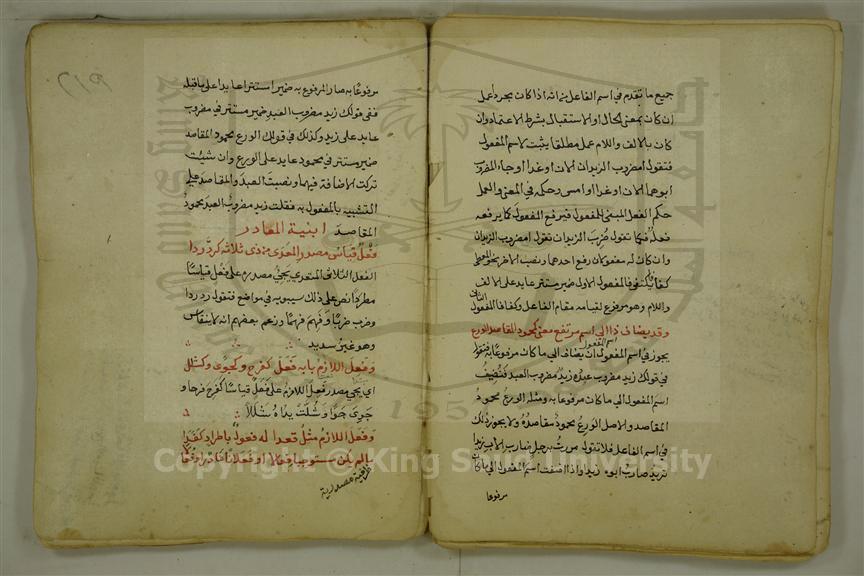 جميع ما تقدم في اسم الفاعل من انه اذا كان مجردا عمل
ان كان بمعنى الحال او الاستقبال بشرط الاعتماد وان
كان بالالف واللام عمل مطلقا يثبت لاسم المفعول
فتقول امضروب الزيدان الان او غدا او جاء المضروب
ابوهما الان او غدا او امس وحكمه في المعنى والعمل
حكم الفعل المبني للمفعول فيرفع المفعول كما يرفعه
فعله فكما تقول ضرب الزيدان تقول امضروب الزيدان
وان كان له مفعولان رفع احدهما ونصب الاخر نحو المعطى
كفافا يكتفي فالمفعول الاول ضمير مستتر عايد على الالف
واللام وهو مرفوع لقيامه مقام الفاعل وكفافا المفعول
الثاني
وقد يضاف ذا الي اسم مرتفع معنى كمحمود المقاصد الورع
يجوز في اسم المفعول ان يضاف الي ما كان مرفوعا به فتقول
في قولك زيد مضروب عبده زيد مضروب العبد فتضيف
اسم المفعول الي ما كان مرفوعا به ومثله الورع محمود
المقاصد والاصل الورع محمود مقاصده ولا يجوز ذلك
في اسم الفاعل فلا تقول مررت برجل ضارب الاب زيدا
تريد ضارب ابوه زيدا واذا اضفت اسم المفعول الي ما كان
مرفوعا
مرفوعا به صار المرفوع به ضميرا مستترا عايدا على ما قبله
ففي قولك زيد مضروب العبد ضمير مستتر في مضروب
عايد على زيد وكذلك في قولك الورع محمود المقاصد
ضمير مستتر في محمود عايد على الورع وان شئت
تركت الاضافة فيهما ونصبت العبد والمقاصد على
التشبيه بالمفعول به فقلت زيد مضروب العبد محمود
المقاصد ابنية المصادر
فعل قياس مصدر المعدى من ذي ثلاثة كرد ردا
الفعل الثلاثي المتعدي يجئ مصدره على فعل قياسا
مطردا نص على ذلك سيبويه في مواضع فتقول رد ردا
وضرب ضربا وفهم فهما وزعم بعضهم انه لا ينقاس
وهو غير سديد
وفعل اللازم بابه فعل كفرح وكجوى وكشلل
اي يجئ مصدر فعل اللازم على فعل قياسا كفرح فرحا و
جوى جوا وشلت يداه شللا
وفعل اللازم مثل قعدا له فعول باطراد كغدا
ما لم يكن مستوجبا فعالا او فعلانا فادر او فعالا
ظرفية مصدرية
Copyright © King Saud University
195